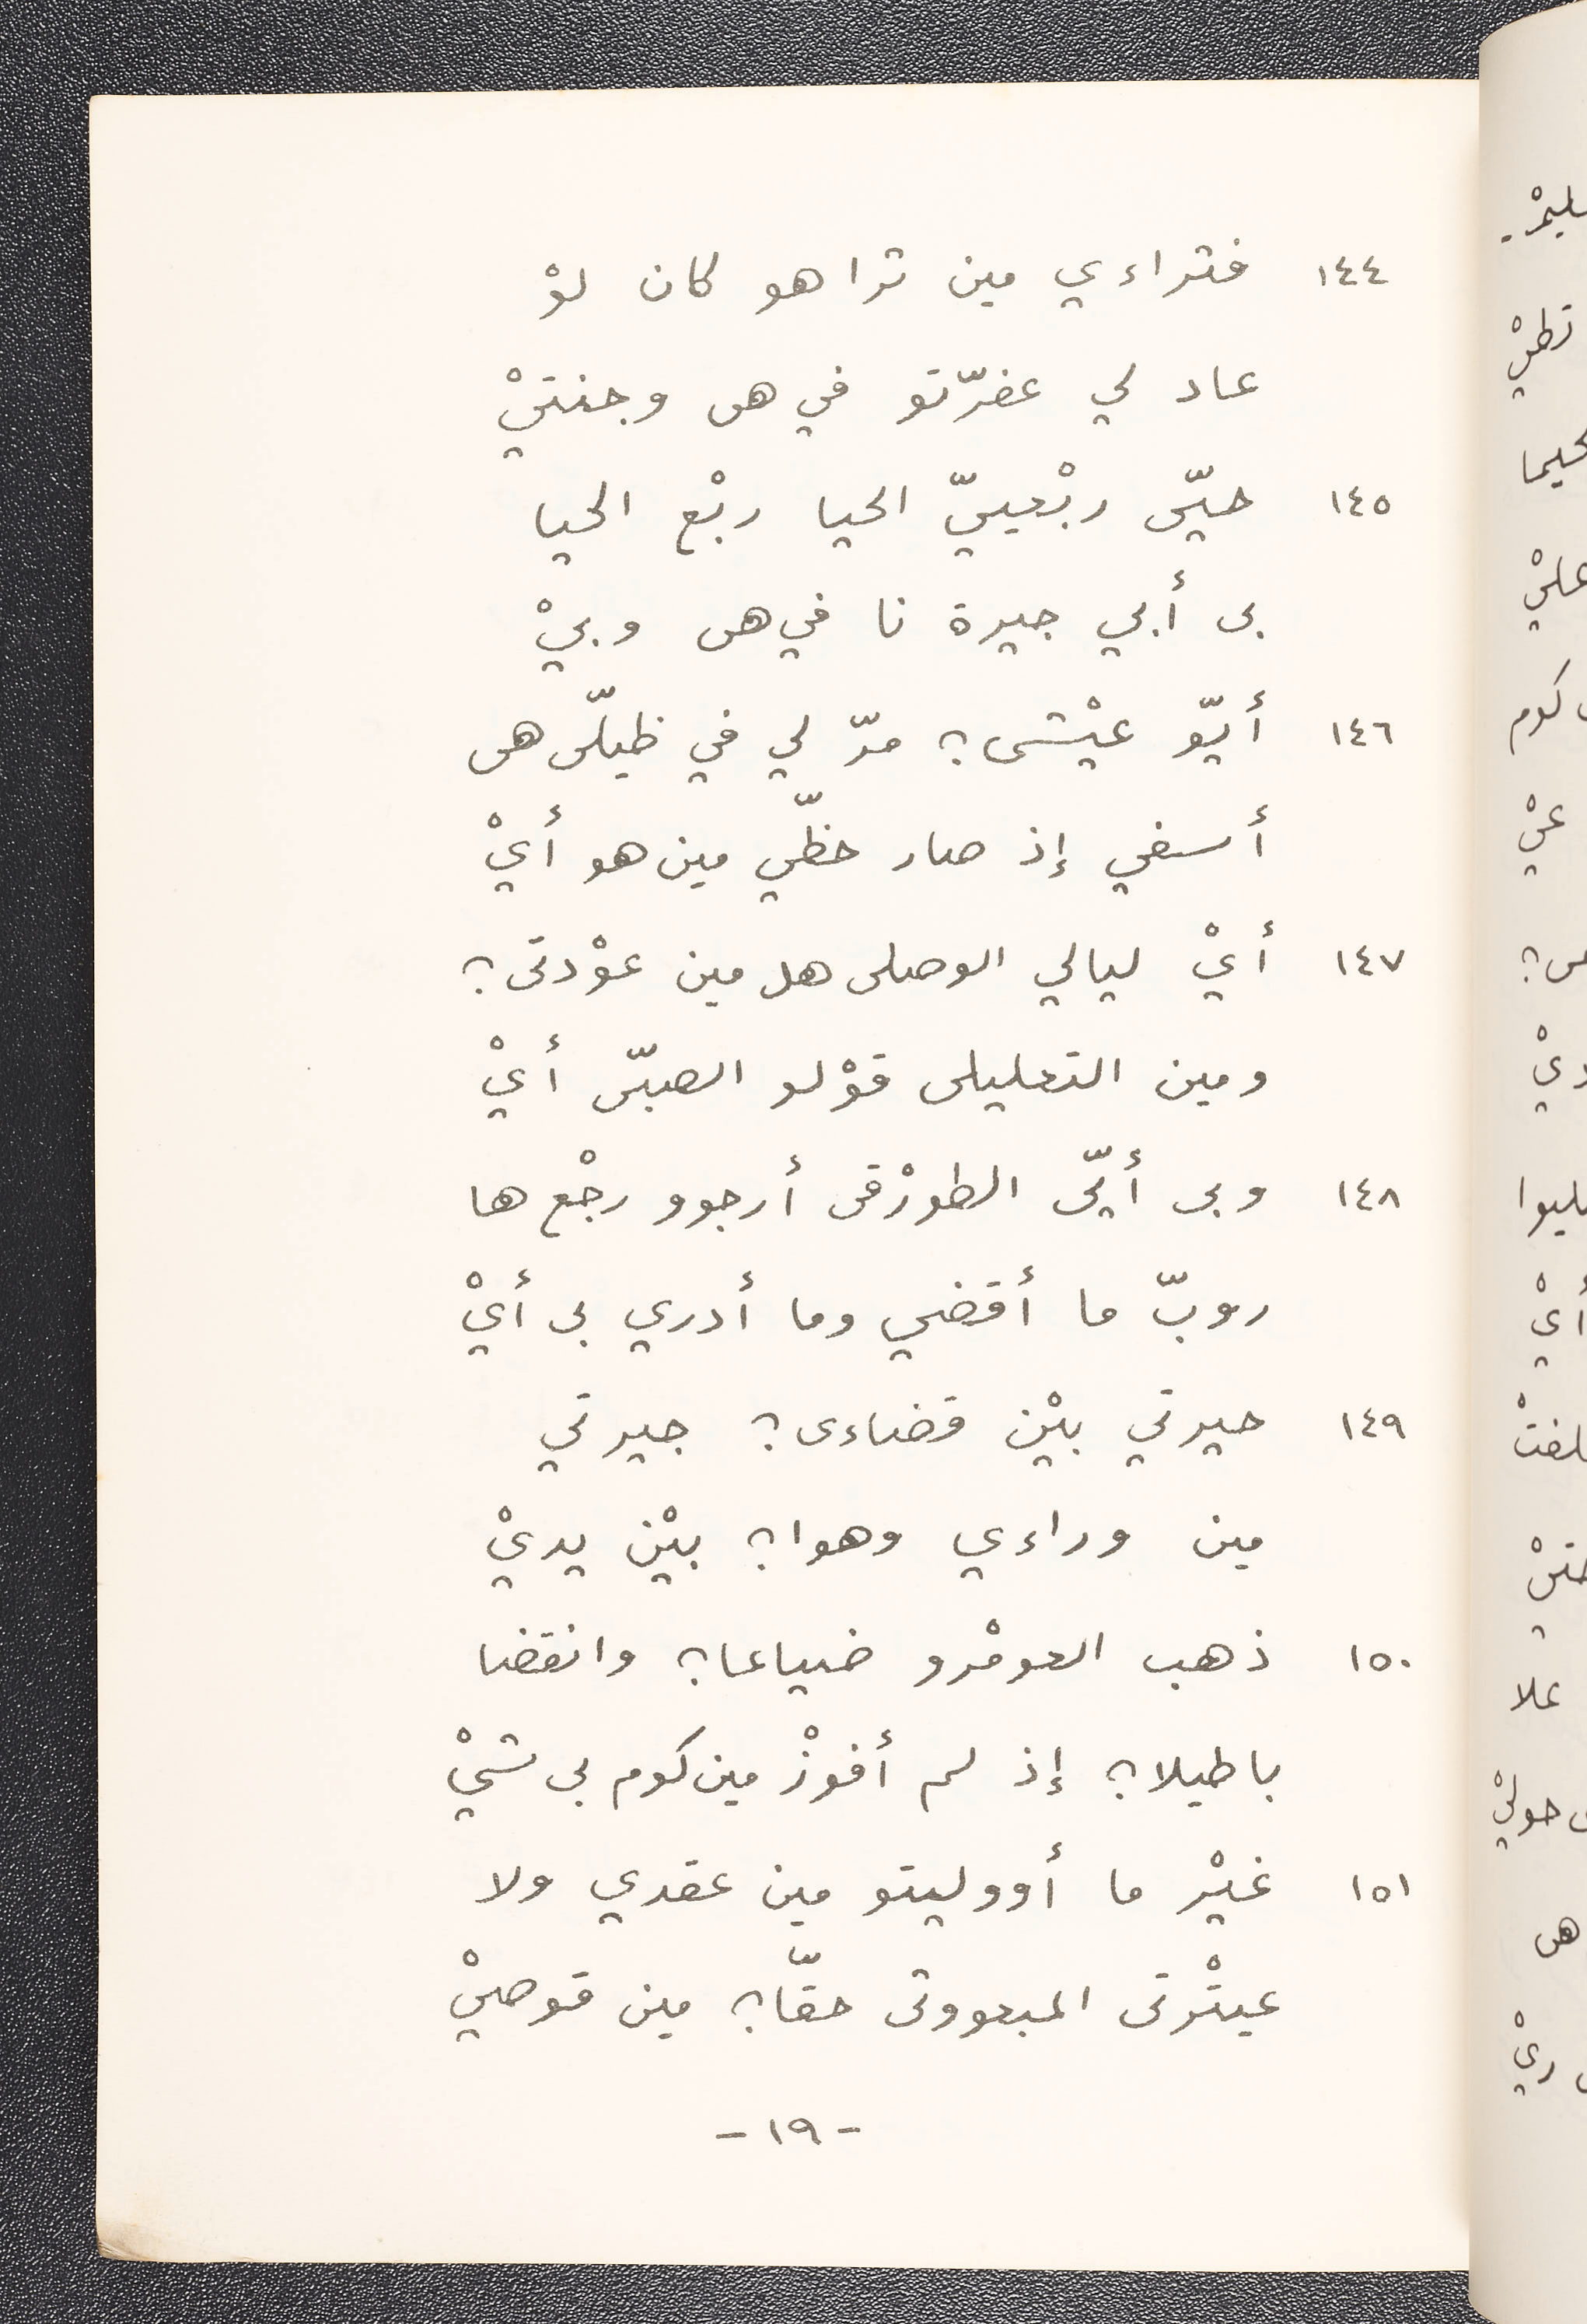 ١٤٤ فتراءي مين تراهو كان لوْ
عاد لي عفرّتو في هى وجنتيْ
١٤٥ حيّى ربْعييّ الحيا ربْع الحيا
بى أبي جيرة نا في هى وبيْ
١٤٦ أيّو عيْشى؟ مرّ لي في ظيلّى هى
أسفي إذ صار حظّي مين هو أيْ
١٤٧ أيْ ليالي الوصلى هل مين عوْدتى؟
ومين التعليلى قوْلو الصبّى أيْ
١٤٨ وبى أيّى الطورْقى أرجوو رجْع ها
روبّ ما أقضي وما أدري بى أيْ
١٤٩ حيرتي بيْن قضاءى؟ جيرتي
مين وراءي وهوا؟ بيْن يديْ
١٥٠ ذهب العومْرو ضياعا؟ وانقضا
باطيلا؟ إذ لم أفوزْ مين كوم بى شيْ
١٥١ غيْر ما أووليتو مين عقدي ولا
عيتْرتى المبعووتى حقّا؟ مين قوصيْ
- ١٩ -
تطيْ
عليْ
كوم
عيْ
ديْ
أيْ
علا
حوليْ
هى
ريْ